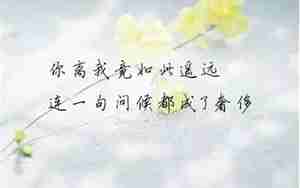 你离我竟如此遥远
连一句问候都成了奢侈